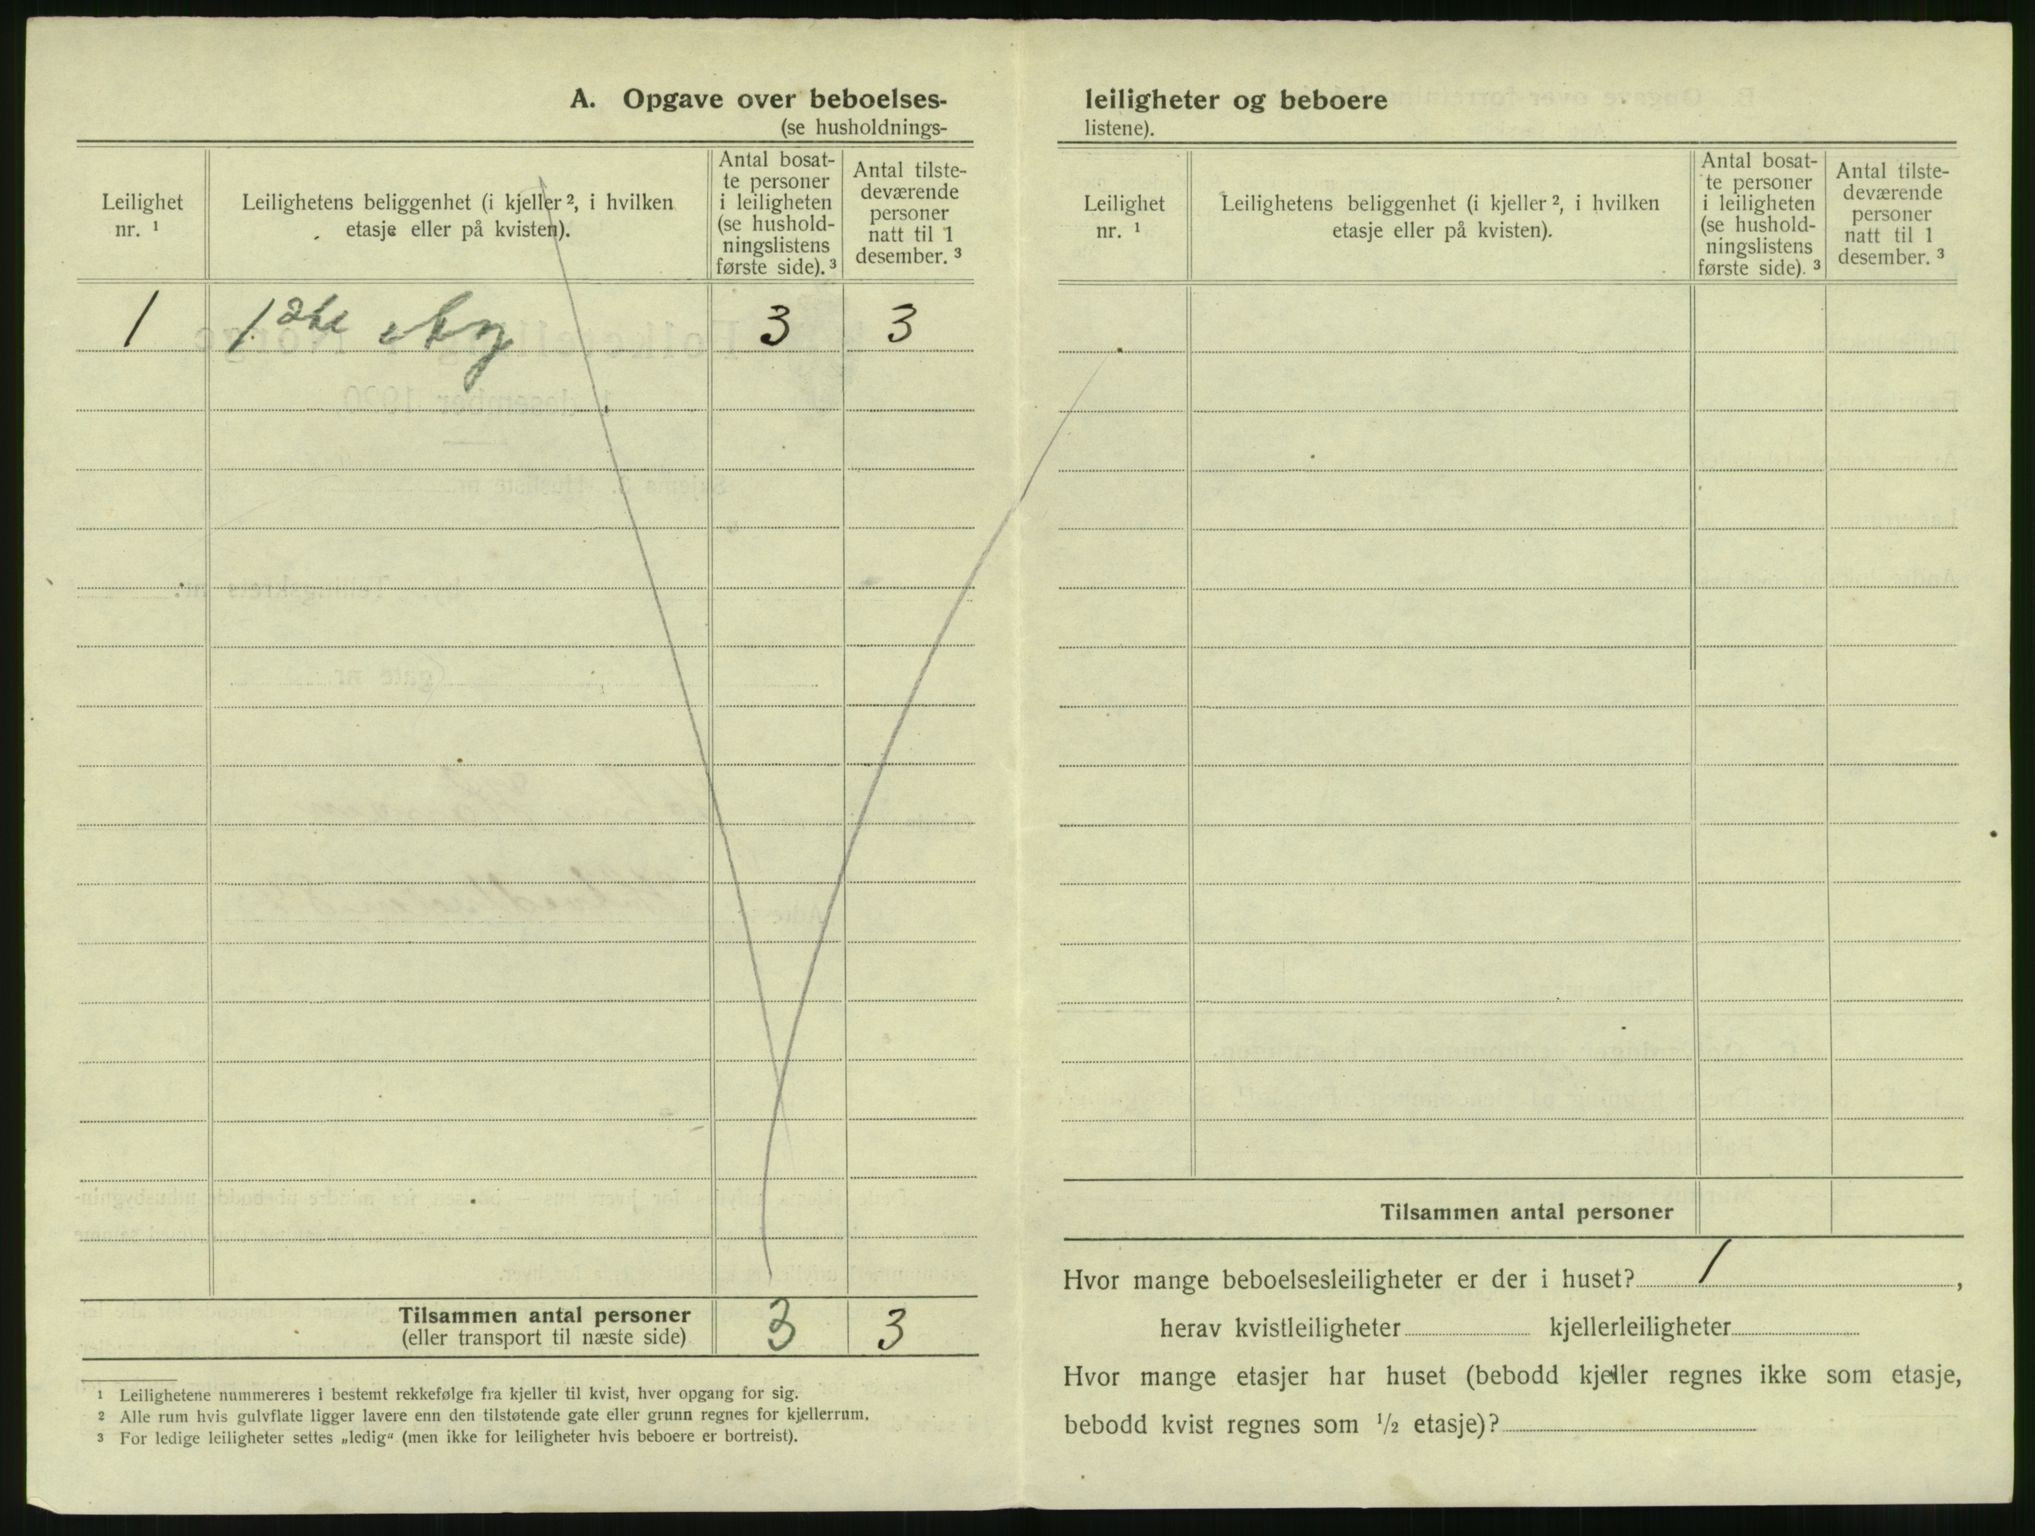 A. Opgave over beboelses-
(se husholdnings-
Leilighet nr. 1
Leilighetens beliggenhet (i kjeller 2, i hvilken etasje eller på kvisten).
Antal bosat-
te personer
i leiligheten
(se hushold-
ningslistens
første side). 3
Antal tilste-
deværende
personer
natt til 1
desember. 3
1 1ste 3 3
Tilsammen antal personer 3 3
(eller transport til næste side)
1 Leilighetene nummereres i bestemt rekkefølge fra kjeller til kvist, hver opgang for sig.
2 Alle rum hvis gulvflate ligger lavere enn den tilstøtende gate eller grunn regnes for kjellerrum.
3 For ledige leiligheter settes „ledig“ (men ikke for leiligheter hvis beboere er bortreist).
leiligheter og beboere
listene).
Leilighet nr. 1
Leilighetens beliggenhet (i kjeller 2, i hvilken etasje eller på kvisten).
Antal bosat-
te personer
i leiligheten
(se hushold-
ningslistens
første side). 3
Antal tilste-
deværende
personer
natt til 1
desember. 3
Tilsammen antal personer
Hvor mange beboelsesleiligheter er der i huset? 1 ,
herav kvistleiligheter kjellerleiligheter
Hvor mange etasjer har huset (bebodd kjeller regnes ikke som etasje,
bebodd kvist regnes som 1/2 etasje)?